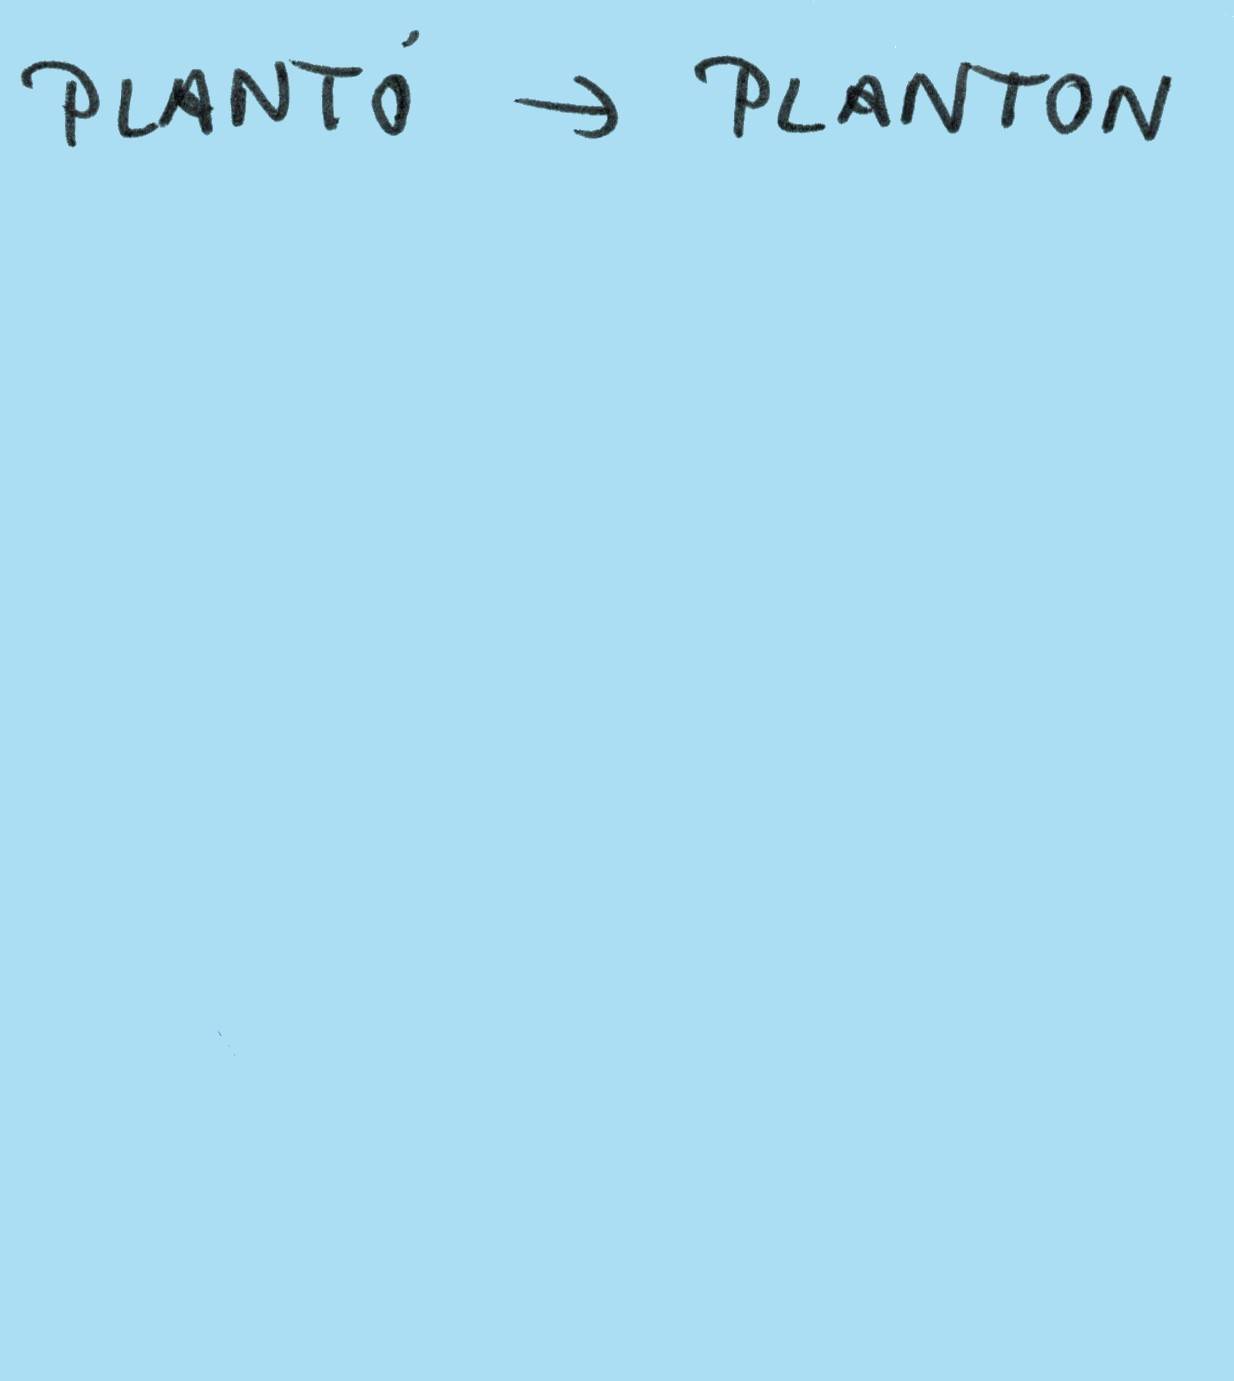 PLANTÓ → PLANTON